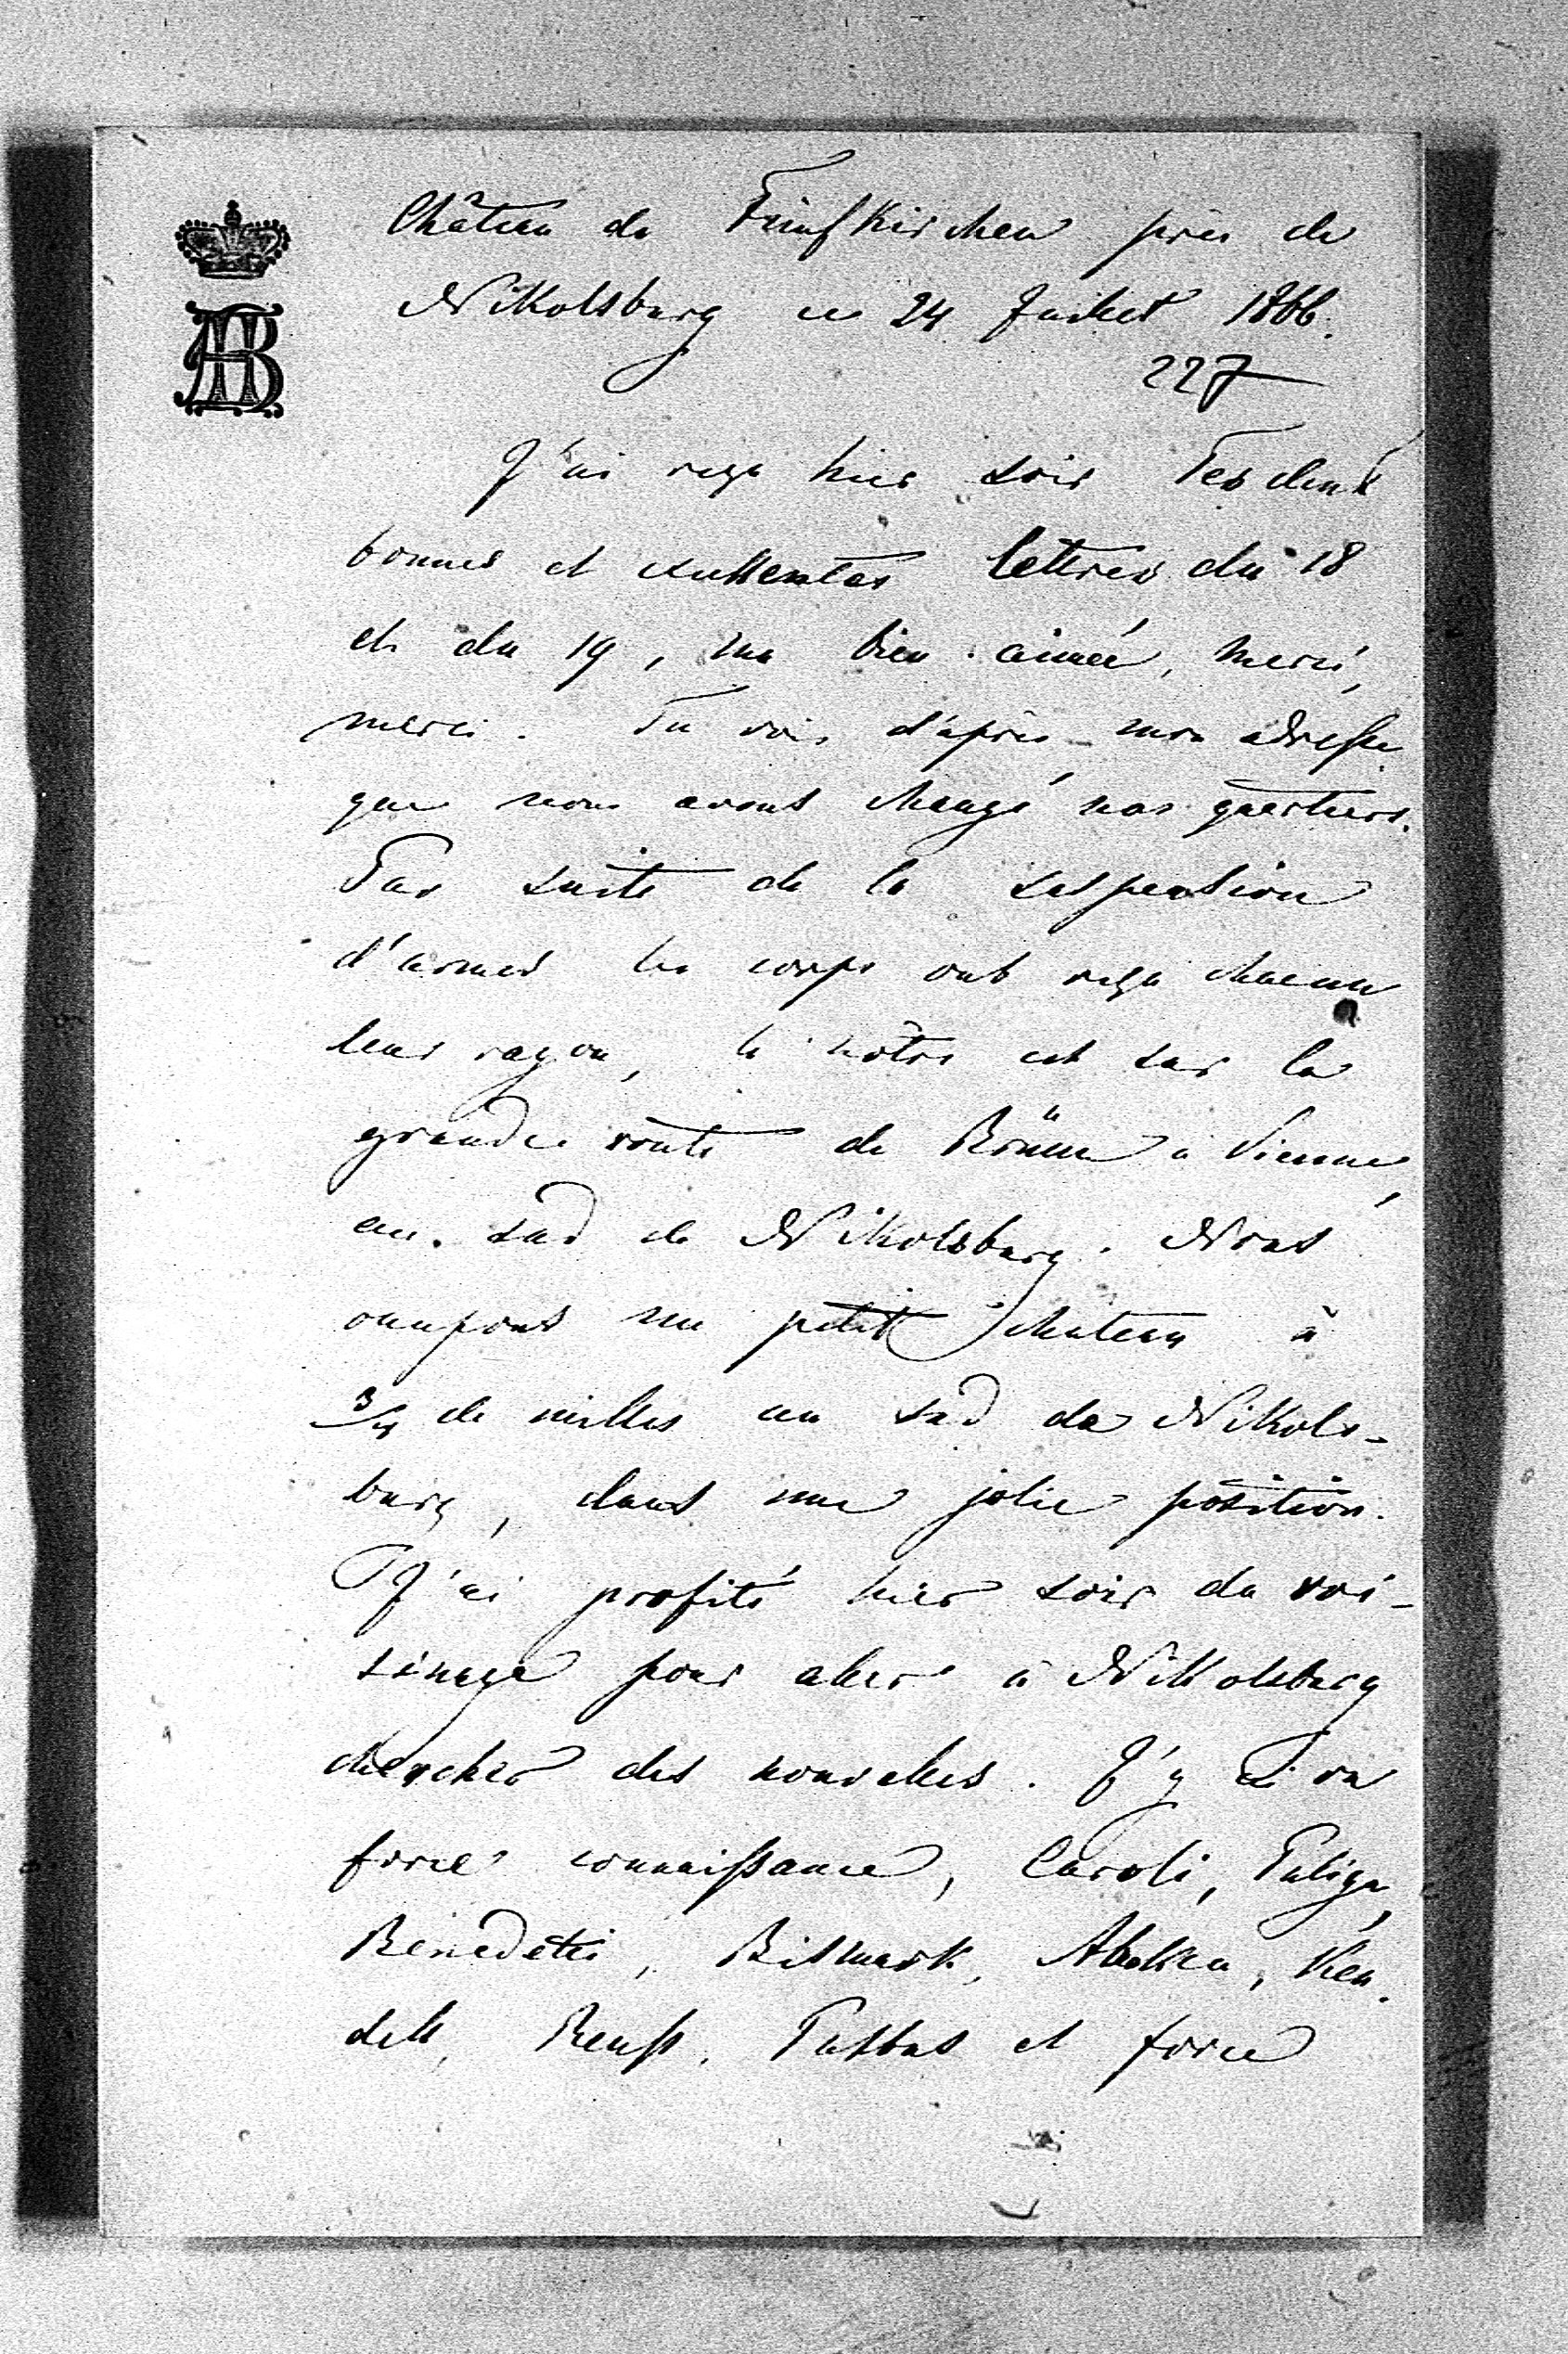 AB
Château de Fünfkirchen près de
Nikolsburg ce 24 Juillet 1866.
227
J'ai reçu hier soir Tes deux
bonnes et excellentes lettres du 18
et du 19, ma bien-aimée, merci,
merci. Tu vois d'après mon adresse
que nous avons changé nos quartiers.
Par suite de la suspension
d'armes les corps ont reçu chacun
leur rayon, le nôtre est sur la
grande route de Brünn à Vienne,
au sud de Nikolsburg. Nous
occupons un petit château à
3/4 de milles au sud de Nikols-
burg, dans une jolie position.
J'ai profité hier soir du voi-
sinage pour aller à Nikolsburg
chercher des nouvelles. J'y ai vu
force connaissance, Caroli,
Benedetti, Bismark, Abeken, Keu-
dell, Reuss, Putbus et force